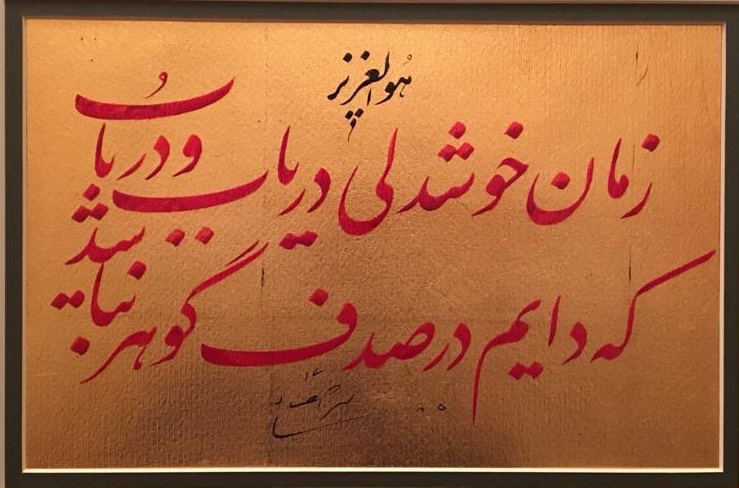 هوالعزیز
زمان خوشدلی دریاب و دریاب
که دایم در صدف گوهر نباشد